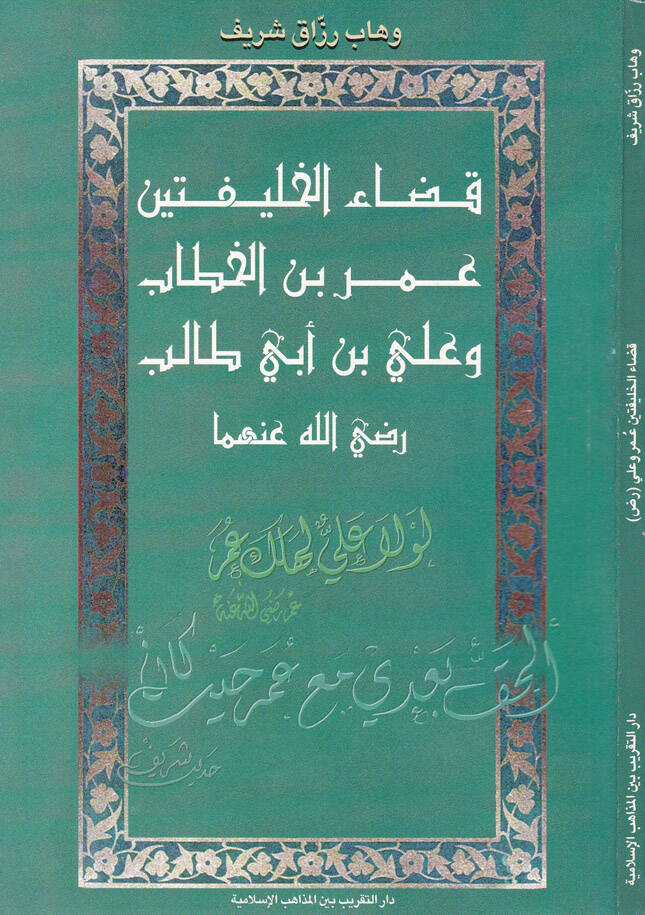 وهاب رزّاق شريف
قضاء الخليفتين
عمر بن الخطاب
وعلي بن أبي طالب
رضي الله عنهما
لولا عليٌّ لهلك عمر
عمر رضي الله عنه
ألحق بعدي مع عمر حيث كان
حديث شريف
دار التقريب بين المذاهب الإسلامية
وهاب رزّاق شريف
قضاء الخليفتين عُمر وعلي (رض)
دار التقريب بين المذاهب الإسلامية